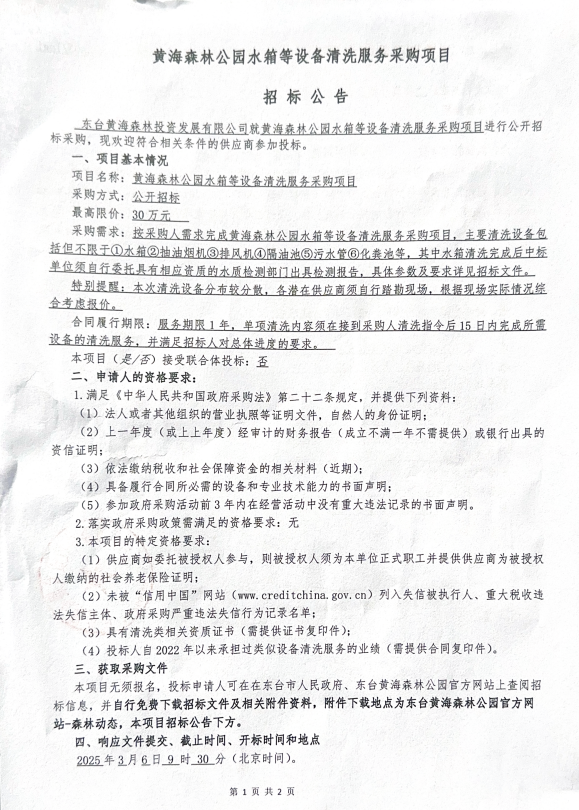 黄海森林公园水箱等设备清洗服务采购项目
招 标 公 告
东台黄海森林投资发展有限公司就黄海森林公园水箱等设备清洗服务采购项目进行公开招
标采购，现欢迎符合相关条件的供应商参加投标。
一、项目基本情况
项目名称：黄海森林公园水箱等设备清洗服务采购项目
采购方式：公开招标
最高限价：30万元
采购需求：按采购人需求完成黄海森林公园水箱等设备清洗服务采购项目，主要清洗设备包
括但不限于①水箱②抽油烟机③排风机④隔油池⑤污水管⑥化粪池等，其中水箱清洗完成后中标
单位须自行委托具有相应资质的水质检测部门出具检测报告，具体参数及要求详见招标文件。
特别提醒：本次清洗设备分布较分散，各潜在供应商须自行踏勘现场，根据现场实际情况综
合考虑报价。
合同履行期限：服务期限1年，单项清洗内容须在接到采购人清洗指令后15日内完成所需
设备的清洗服务，并满足招标人对总体进度的要求。
本项目（是/否）接受联合体投标：否
二、申请人的资格要求：
1.满足《中华人民共和国政府采购法》第二十二条规定，并提供下列资料：
（1）法人或者其他组织的营业执照等证明文件，自然人的身份证明；
（2）上一年度（或上上年度）经审计的财务报告（成立不满一年不需提供）或银行出具的
资信证明；
（3）依法缴纳税收和社会保障资金的相关材料（近期）；
（4）具备履行合同所必需的设备和专业技术能力的书面声明；
（5）参加政府采购活动前3年内在经营活动中没有重大违法记录的书面声明。
2.落实政府采购政策需满足的资格要求：无
3.本项目的特定资格要求：
（1）供应商如委托被授权人参与，则被授权人须为本单位正式职工并提供供应商为被授权
人缴纳的社会养老保险证明；
（2）未被“信用中国”网站（www.creditchina.gov.cn）列入失信被执行人、重大税收违
法失信主体、政府采购严重违法失信行为记录名单；
（3）具有清洗类相关资质证书（需提供证书复印件）；
（4）投标人自2022年以来承担过类似设备清洗服务的业绩（需提供合同复印件）。
三、获取采购文件
本项目无须报名，投标申请人可在在东台市人民政府、东台黄海森林公园官方网站上查阅招
标信息，并自行免费下载招标文件及相关附件资料，附件下载地点为东台黄海森林公园官方网
站-森林动态，本项目招标公告下方。
四、响应文件提交、截止时间、开标时间和地点
2025年3月6日9时30分（北京时间）。
第 1 页 共 2 页